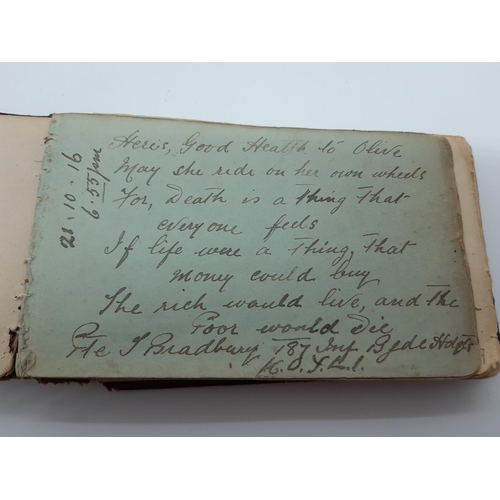 Heris, Good Health to Olive
May she ride on her own wheels
For, Death is a Thing That
everyone feels
If life were a Thing, that
money could buy
The rich would live, and the
Poor would Die
Pte J Bradbury 187 Inf. Bgde Hdqts
K.O.Y.L.I.
21.10.16
6.55/pm